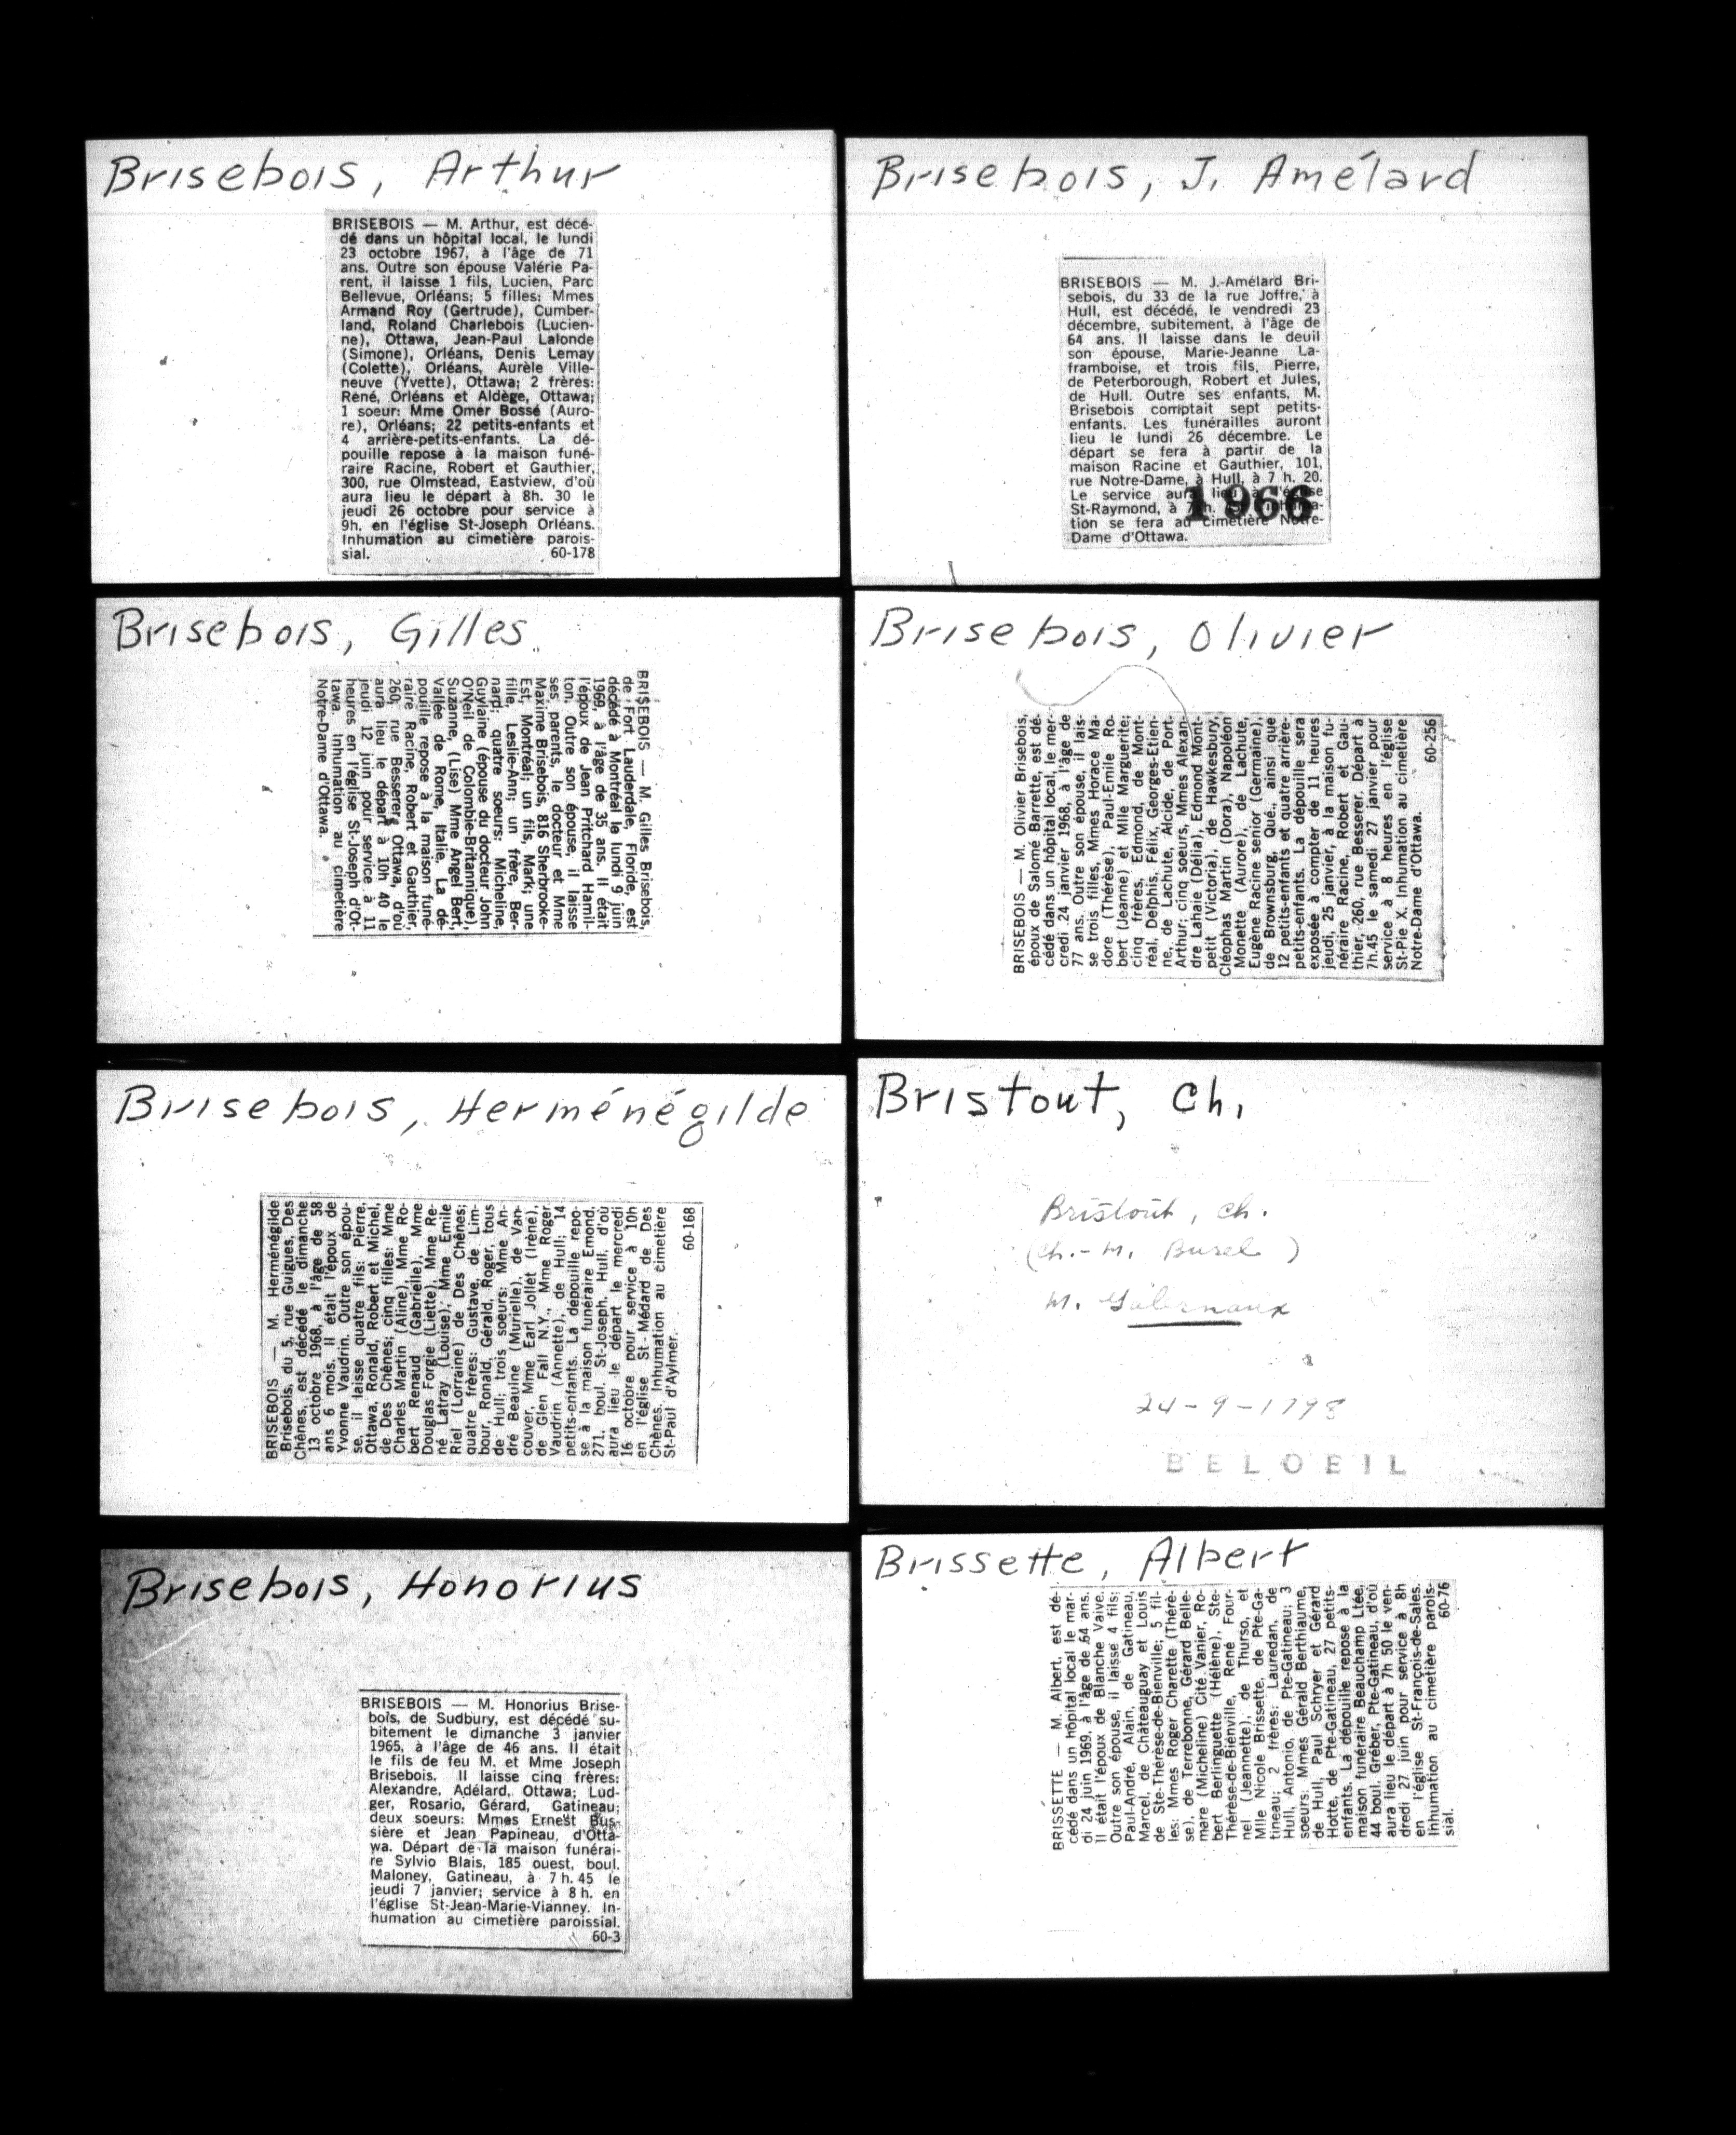 Brisebois, Arthur
BRISEBOIS — M. Arthur, est décé-
dé dans un hôpital local, le lundi
23 octobre 1967, à l'âge de 71
ans. Outre son épouse Valérie Pa-
rent, il laisse 1 fils, Lucien, Parc
Bellevue, Orléans; 5 filles: Mmes
Armand Roy (Gertrude), Cumber-
land, Roland Charlebois (Lucien-
ne), Ottawa, Jean-Paul Lalonde
(Simone), Orléans, Denis Lemay
(Colette), Orléans, Aurèle Ville-
neuve (Yvette), Ottawa; 2 frères:
René, Orléans et Aldège, Ottawa;
1 soeur: Mme Omer Bossé (Auro-
re), Orléans; 22 petits-enfants et
4 arrière-petits-enfants. La dé-
pouille repose à la maison funé-
raire Racine, Robert et Gauthier,
300, rue Olmstead, Eastview, d'où
aura lieu le départ à 8h. 30 le
jeudi 26 octobre pour service à
9h. en l'église St-Joseph Orléans.
Inhumation au cimetière parois-
sial. 60-178
Brisebois, J. Amélard
BRISEBOIS — M. J.-Amélard Bri-
sebois, du 33 de la rue Joffre, à
Hull, est décédé, le vendredi 23
décembre, subitement, à l'âge de
64 ans. Il laisse dans le deuil
son épouse, Marie-Jeanne La-
framboise, et trois fils, Pierre,
de Peterborough, Robert et Jules,
de Hull. Outre ses enfants, M.
Brisebois comptait sept petits-
enfants. Les funérailles auront
lieu le lundi 26 décembre. Le
départ se fera à partir de la
maison Racine et Gauthier, 101,
rue Notre-Dame, à Hull, à 7 h. 20.
Le service aura lieu à l'église
St-Raymond, à 7 h.
tion se fera au cimetière Notre-
Dame d'Ottawa.
1966
Brisebois, Gilles
BRISEBOIS — M. Gilles Brisebois,
de Fort Lauderdale, Floride, est
décédé à Montréal le lundi 9 juin
1969, à l'âge de 35 ans. Il était
l'époux de Jean Pritchard Hamil-
ton. Outre son épouse, il laisse
ses parents, le docteur et Mme
Maxime Brisebois, 816 Sherbrooke-
Est, Montréal; un fils, Mark; une
fille, Leslie-Ann; un frère, Ber-
nard; quatre soeurs: Micheline,
Guylaine (épouse du docteur John
O'Neil de Colombie-Britannique),
Suzanne, (Lise) Mme Angel Bert,
Vallée de Rome, Italie. La dé-
pouille repose à la maison funé-
raire Racine, Robert et Gauthier,
260, rue Besserer, Ottawa, d'où
aura lieu le départ à 10h 40 le
jeudi 12 juin pour service à 11
heures en l'église St-Joseph d'Ot-
tawa. Inhumation au cimetière
Notre-Dame d'Ottawa.
Brisebois, Olivier
BRISEBOIS — M. Olivier Brisebois,
époux de Salomé Barrette, est dé-
cédé dans un hôpital local, le mer-
credi 24 janvier 1968, à l'âge de
77 ans. Outre son épouse, il lais-
se trois filles, Mmes Horace Ma-
dore (Thérèse), Paul-Emile Ro-
bert (Jeanne) et Mlle Marguerite;
cinq frères, Edmond, de Mont-
réal, Delphis, Félix, Georges-Etien-
ne, de Lachute, Alcide, de Port-
Arthur; cinq soeurs, Mmes Alexan-
dre Lahaie (Délia), Edmond Mont-
petit (Victoria), de Hawkesbury,
Cléophas Martin (Dora), Napoléon
Monette (Aurore), de Lachute,
Eugène Racine senior (Germaine),
de Brownsburg, Qué., ainsi que
12 petits-enfants et quatre arrière-
petits-enfants. La dépouille sera
exposée à compter de 11 heures
jeudi, 25 janvier, à la maison fu-
néraire Racine, Robert et Gau-
thier, 260, rue Besserer. Départ à
7h.45 le samedi 27 janvier pour
service à 8 heures en l'église
St-Pie X. Inhumation au cimetière
Notre-Dame d'Ottawa.
60-256
Brisebois, Herménégilde
BRISEBOIS — M. Herménégilde
Brisebois, du 5, rue Guigues, Des
Chênes, est décédé le dimanche
13 octobre 1968, à l'âge de 58
ans 6 mois. Il était l'époux de
Yvonne Vaudrin. Outre son épou-
se, il laisse quatre fils: Pierre,
Ottawa, Ronald, Robert et Michel,
de Des Chênes; cinq filles: Mme
Charles Martin (Aline), Mme Ro-
bert Renaud (Gabrielle), Mme
Douglas Forgie (Liette), Mme Re-
né Latray (Louise), Mme Emile
Riel (Lorraine) de Des Chênes;
quatre frères: Gustave, de Lim-
bour, Ronald, Gérald, Roger, tous
de Hull; trois soeurs: Mme An-
dré Beaulne (Murielle), de Van-
couver, Mme Earl Jollet (Irène),
de Glen Fall N.Y., Mme Roger
Vaudrin (Annette), de Hull; 14
petits-enfants. La dépouille repo-
se à la maison funéraire Emond,
271, boul. St-Joseph, Hull, d'où
aura lieu le départ le mercredi
16 octobre pour service à 10h
en l'église St-Médard de Des
Chênes. Inhumation au cimetière
St-Paul d'Aylmer.
60-168
Bristout, Ch.
Bristout, Ch.
(Ch.-M. Burel)
M. Galernaux
24-9-1798
BELOEIL
Brisebois, Honorius
BRISEBOIS — M. Honorius Brise-
bois, de Sudbury, est décédé su-
bitement le dimanche 3 janvier
1965, à l'âge de 46 ans. Il était
le fils de feu M. et Mme Joseph
Brisebois. Il laisse cinq frères:
Alexandre, Adélard, Ottawa; Lud-
ger, Rosario, Gérard, Gatineau;
deux soeurs: Mmes Ernest Bus-
sière et Jean Papineau, d'Otta-
wa. Départ de la maison funérai-
re Sylvio Blais, 185 ouest, boul.
Maloney, Gatineau, à 7 h. 45 le
jeudi 7 janvier; service à 8 h. en
l'église St-Jean-Marie-Vianney. In-
humation au cimetière paroissial.
60-3
Brissette, Albert
BRISSETTE — M. Albert, est dé-
cédé dans un hôpital local le mar-
di 24 juin 1969, à l'âge de 64 ans.
Il était l'époux de Blanche Vaive.
Outre son épouse, il laisse 4 fils:
Paul-André, Alain, de Gatineau,
Marcel, de Châteauguay et Louis
de Ste-Thérèse-de-Bienville; 5 fil-
les: Mmes Roger Charette (Thérè-
se), de Terrebonne, Gérard Belle-
mare (Micheline) Cité Vanier, Ro-
bert Berlinguette (Hélène), Ste-
Thérèse-de-Bienville, René Four-
nel (Jeannette), de Thurso, et
Mlle Nicole Brissette, de Pte-Ga-
tineau; 2 frères: Lauredan, de
Hull, Antonio, de Pte-Gatineau; 3
soeurs: Mmes Gérald Berthiaume,
de Hull, Paul Schryer et Gérard
Hotte, de Pte-Gatineau, 27 petits-
enfants. La dépouille repose à la
maison funéraire Beauchamp Ltée,
44 boul. Gréber, Pte-Gatineau, d'où
aura lieu le départ à 7h 50 le ven-
dredi 27 juin pour service à 8h
en l'église St-François-de-Sales.
Inhumation au cimetière parois-
sial. 60-76